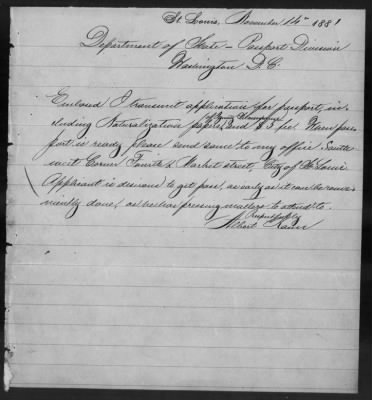 St. Louis, November 14th 1881
Department of State - Passport Division
Washington D.C.
Enclosed I transmit application for passport, in-
cluding Naturalization papers and $5 fee. When pass
port is ready please send same to my office South
west Corner Fourth & Market street, City of St. Louis
Applicant is desirous to get pass, as early as it can be conve-
niently done, as he has pressing matters to attend to.
Respectfully
Albert